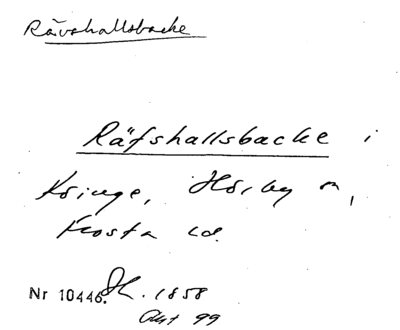 Rävshallsbacke
Räfshallsbacke i
Kringe, Hörby sn,
Frosta hd.
Nr 10446. Sk. 1858
Akt 99